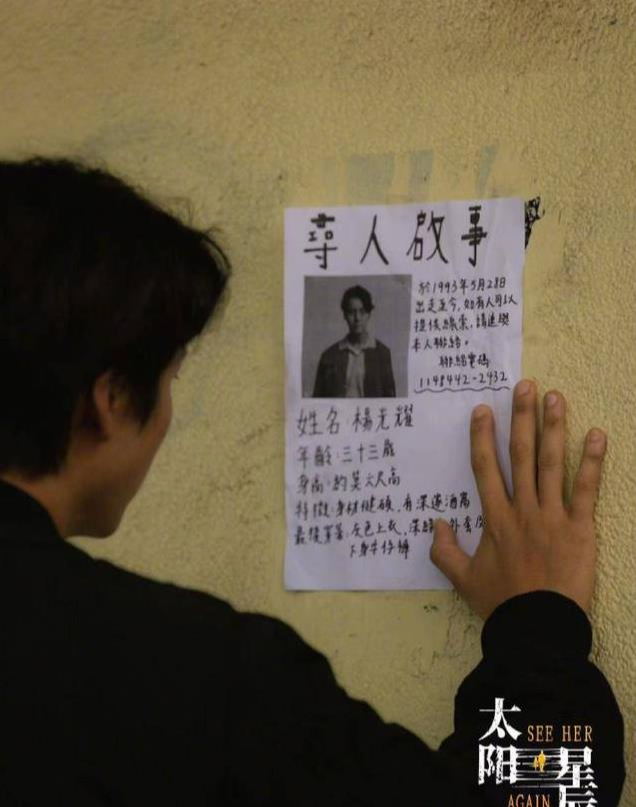 尋人啟事
於1993年5月28日
出走至今,如有人可以
提供線索,請速與
本人聯絡。
聯絡電碼
1148442-2432
姓名:楊光耀
年齡:三十三歲
身高:約莫六尺高
特徵:身材健碩,有深邃酒窩
最後穿著:灰色上衣,深 外套
下身牛仔褲
太阳
星辰
SEE HER
AGAIN